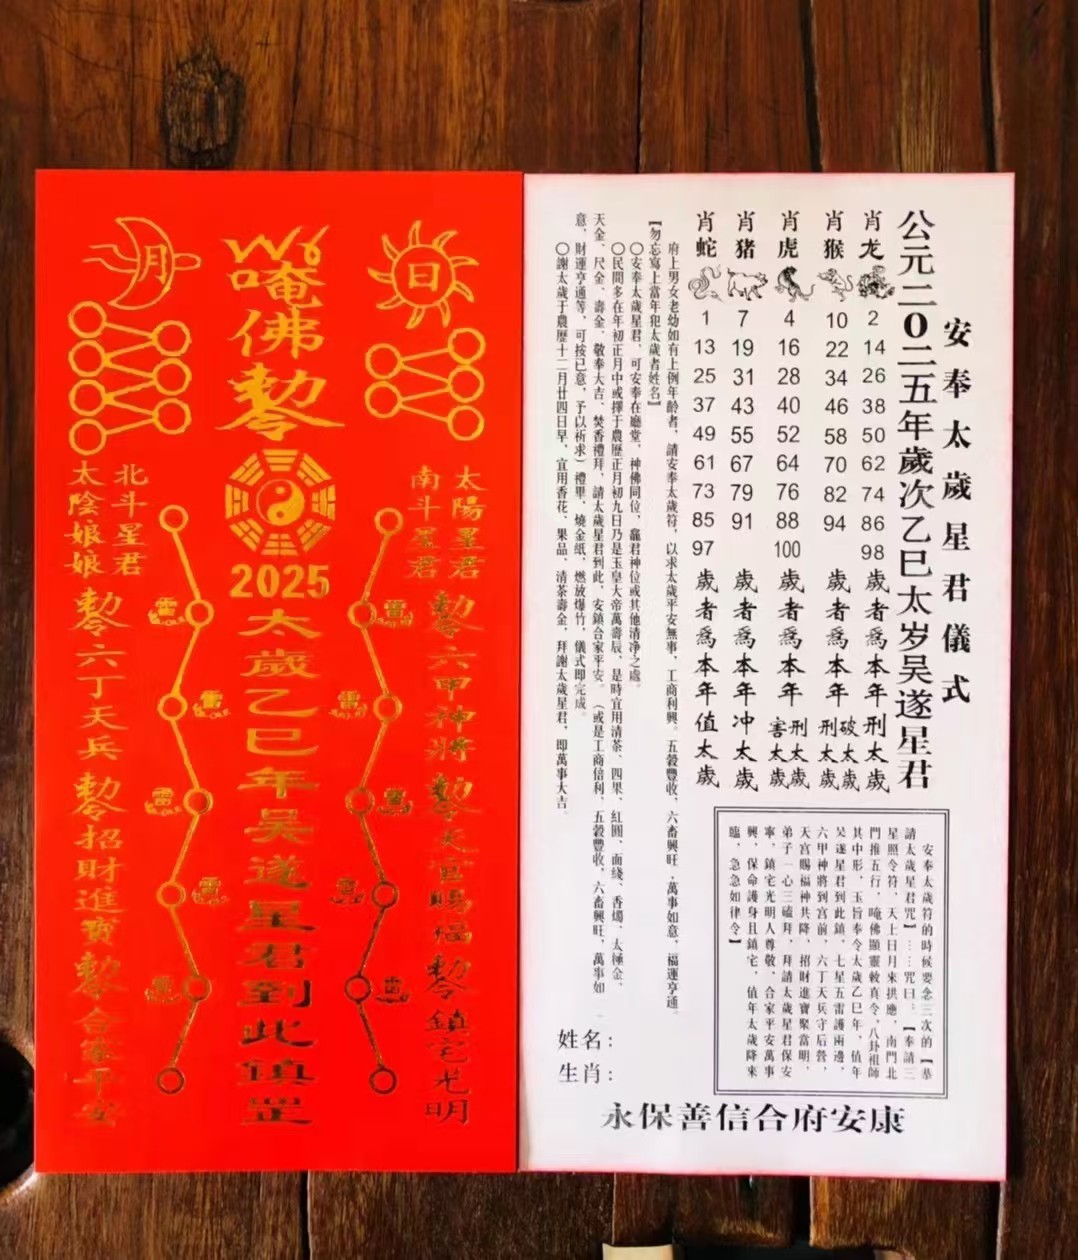 日
月
唵佛勅令
太陽星君
南斗星君
北斗星君
太陰娘娘
2025
太歲乙巳年吴遂星君到此鎮罡
勅令六甲神將勅令天官賜福勅令鎮宅光明
勅令六丁天兵勅令招財進寶勅令合家平安
安奉太歲星君儀式
公元二〇二五年歲次乙巳太岁吴遂星君
肖龙 2 14 26 38 50 62 74 86 98 歲者爲本年刑太歲
肖猴 10 22 34 46 58 70 82 94 歲者爲本年刑太歲破太歲
肖虎 4 16 28 40 52 64 76 88 100 歲者爲本年刑太歲害太歲
肖猪 7 19 31 43 55 67 79 91 歲者爲本年冲太歲
肖蛇 1 13 25 37 49 61 73 85 97 歲者爲本年值太歲
府上男女老幼如有上例年齡者，請安奉太歲符，以求太歲平安無事，工商利興。五穀豐收，六畜興旺，萬事如意，福運亨通。
【勿忘寫上當年犯太歲者姓名】
〇安奉太歲星君，可安奉在廳堂，神佛同位，竈君神位或其他清净之處。
〇民間多在年初正月中或擇于農歷正月初九日乃是玉皇大帝萬壽辰，是時宜用清茶、四果、紅圓、面綫、香燭、太極金、
天金、尺金、壽金，敬奉大吉，焚香禮拜，請太歲星君到此，安鎮合家平安。（或是工商倍利，五穀豐收，六畜興旺，萬事如
意，財運亨通等，可按已意，予以祈求）禮畢，燒金紙，燃放爆竹，儀式即完成。
〇謝太歲于農歷十二月廿四日早，宜用香花、果品、清茶壽金，拜謝太歲星君，即萬事大吉。
安奉太歲符的時候要念三次的【恭
請太歲星君咒】……咒曰：【奉請三
星照令符，天上日月來拱應，南門北
門推五行，唵佛顯靈敕真令，八卦祖師
其中形，玉旨奉令太歲乙巳年，值年
吴遂星君到此鎮，七星五雷護兩邊，
六甲神將到宫前，六丁天兵守后營，
天宫賜福神共降，招財進寶聚當明，
弟子一心三磕拜，拜請太歲星君保安
寧，鎮宅光明人尊敬，合家平安萬事
興，保命護身且鎮宅，值年太歲降來
臨，急急如律令】
姓名：
生肖：
永保善信合府安康